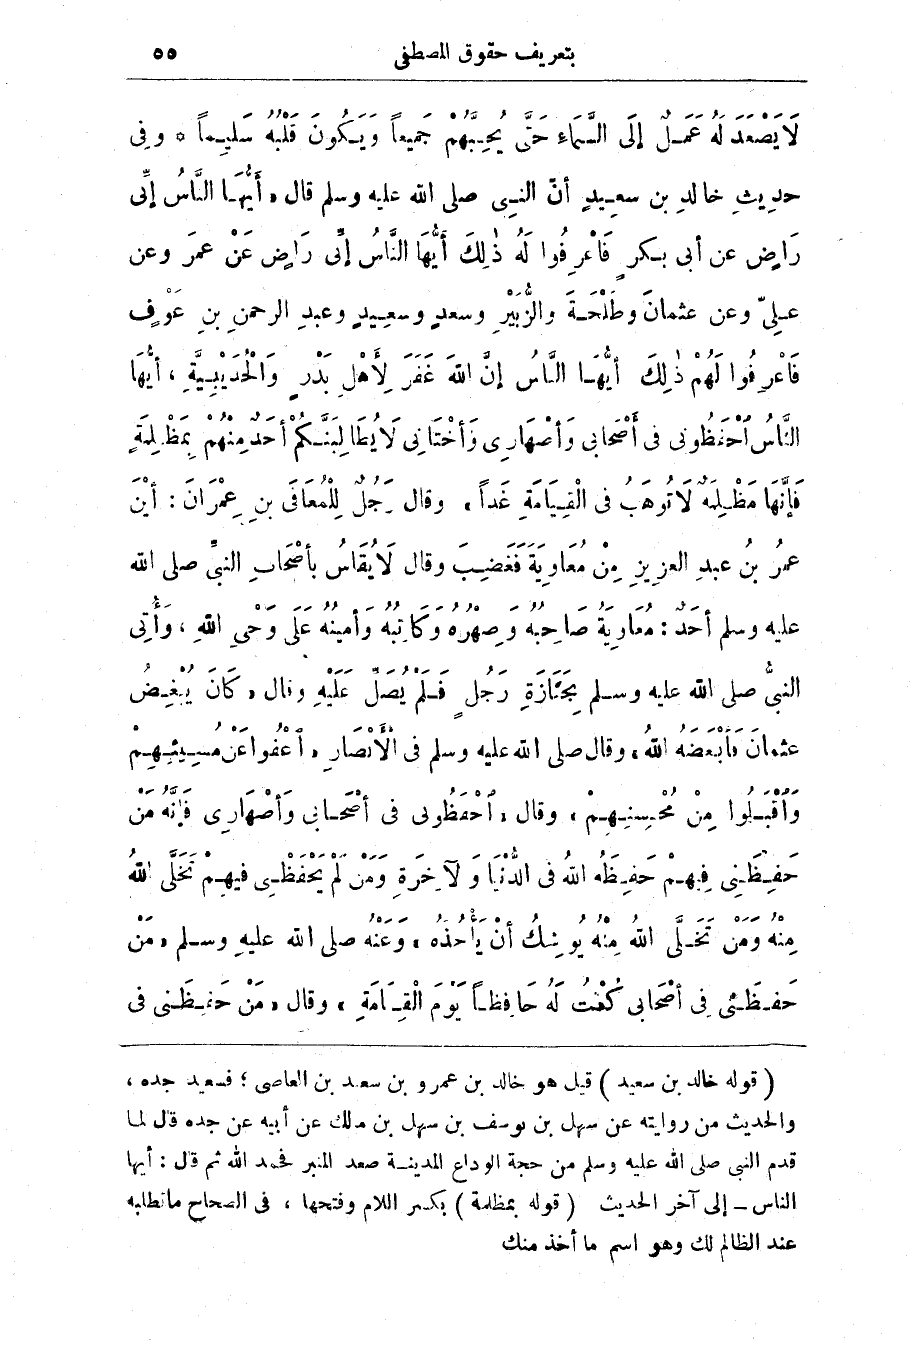 بتعريف حقوق المصطفى ٥٥
لَا يَصْعَدُ لَهُ عَمَلٌ إِلَى السَّمَاءِ حَتَّى يُحِبَّهُمْ جَمِيعاً وَيَكُونَ قَلْبُهُ سَلِيماً * وفى
حديثِ خالدِ بنِ سعيدٍ أنّ النبى صلى الله عليه وسلم قال « أَيُّهَا النَّاسُ إِنِّى
رَاضٍ عن أبى بكرٍ فَاعْرِفُوا لَهُ ذٰلِكَ أَيُّهَا النَّاسُ إِنِّى رَاضٍ عَنْ عمَرَ وعن
علىّ وعن عثمانَ وطَلْحَةَ والزُّبَيْرِ وسعدٍ وسعيدٍ وعبدِ الرحمنِ بنِ عَوْفٍ
فَاعْرِفُوا لَهُمْ ذٰلِكَ أَيُّهَا النَّاسُ إِنَّ اللهَ غَفَرَ لِأَهْلِ بَدْرٍ وَالْحُدَيْبِيَّةِ ، أَيُّهَا
النَّاسُ احْفَظُونِى فى أَصْحَابِى وَأَصْهَارِى وَأَخْتَانِى لَا يُطَالِبَنَّكُمْ أَحَدٌ مِنْهُمْ بِمَظْلِمَةٍ
فَإِنَّهَا مَظْلِمَةٌ لَا تُوهَبُ فى الْقِيَامَةِ غَداً » وقال رَجُلٌ لِلْمُعَافَى بنِ عِمْرَانَ : أَيْنَ
عمرُ بنُ عبدِ العزيزِ مِنْ مُعَاوِيَةَ فَغَضِبَ وقال لَا يُقَاسُ بأَصْحَابِ النبىِّ صلى الله
عليه وسلم أَحَدٌ : مُعَاوِيَةُ صَاحِبُهُ وَصِهْرُهُ وَكَاتِبُهُ وَأَمِينُهُ عَلَى وَحْىِ اللهِ ، وَأُتِىَ
النبىُّ صلى الله عليه وسلم بِجَنَازَةِ رَجُلٍ فَلَمْ يُصَلِّ عَلَيْهِ وقال « كَانَ يُبْغِضُ
عثمانَ فَأَبْغَضَهُ اللهُ » وقال صلى الله عليه وسلم فى الْأَنْصَارِ « اعْفُوا عَنْ مُسِيئِهِمْ
وَاقْبَلُوا مِنْ مُحْسِنِهِمْ » وقال « احْفَظُونِى فى أَصْحَابِى وَأَصْهَارِى فَإِنَّهُ مَنْ
حَفِظَنِى فِيهِمْ حَفِظَهُ اللهُ فى الدُّنْيَا وَالْآخِرَةِ وَمَنْ لَمْ يَحْفَظْنِى فِيهِمْ تَخَلَّى اللهُ
مِنْهُ وَمَنْ تَخَلَّى اللهُ مِنْهُ يُوشِكُ أَنْ يَأْخُذَهُ » وَعَنْهُ صلى الله عليه وسلم « مَنْ
حَفِظَنِى فِى أَصْحَابِى كُنْتُ لَهُ حَافِظاً يَوْمَ الْقِيَامَةِ » وقال « مَنْ حَفِظَنِى فى
( قوله خالد بن سعيد ) قيل هو خالد بن عمرو بن سعيد بن العاصى ؛ فسعيد جده ،
والحديث من روايته عن سهل بن يوسف بن سهل بن مالك عن أبيه عن جده قال لما
قدم النبى صلى الله عليه وسلم من حجة الوداع المدينة صعد المنبر فحمد الله ثم قال : أيها
الناس – إلى آخر الحديث ( قوله بمظلمة ) بكسر اللام وفتحها ، فى الصحاح ماتطلبه
عند الظالم لك وهو اسم ما أخذ منك